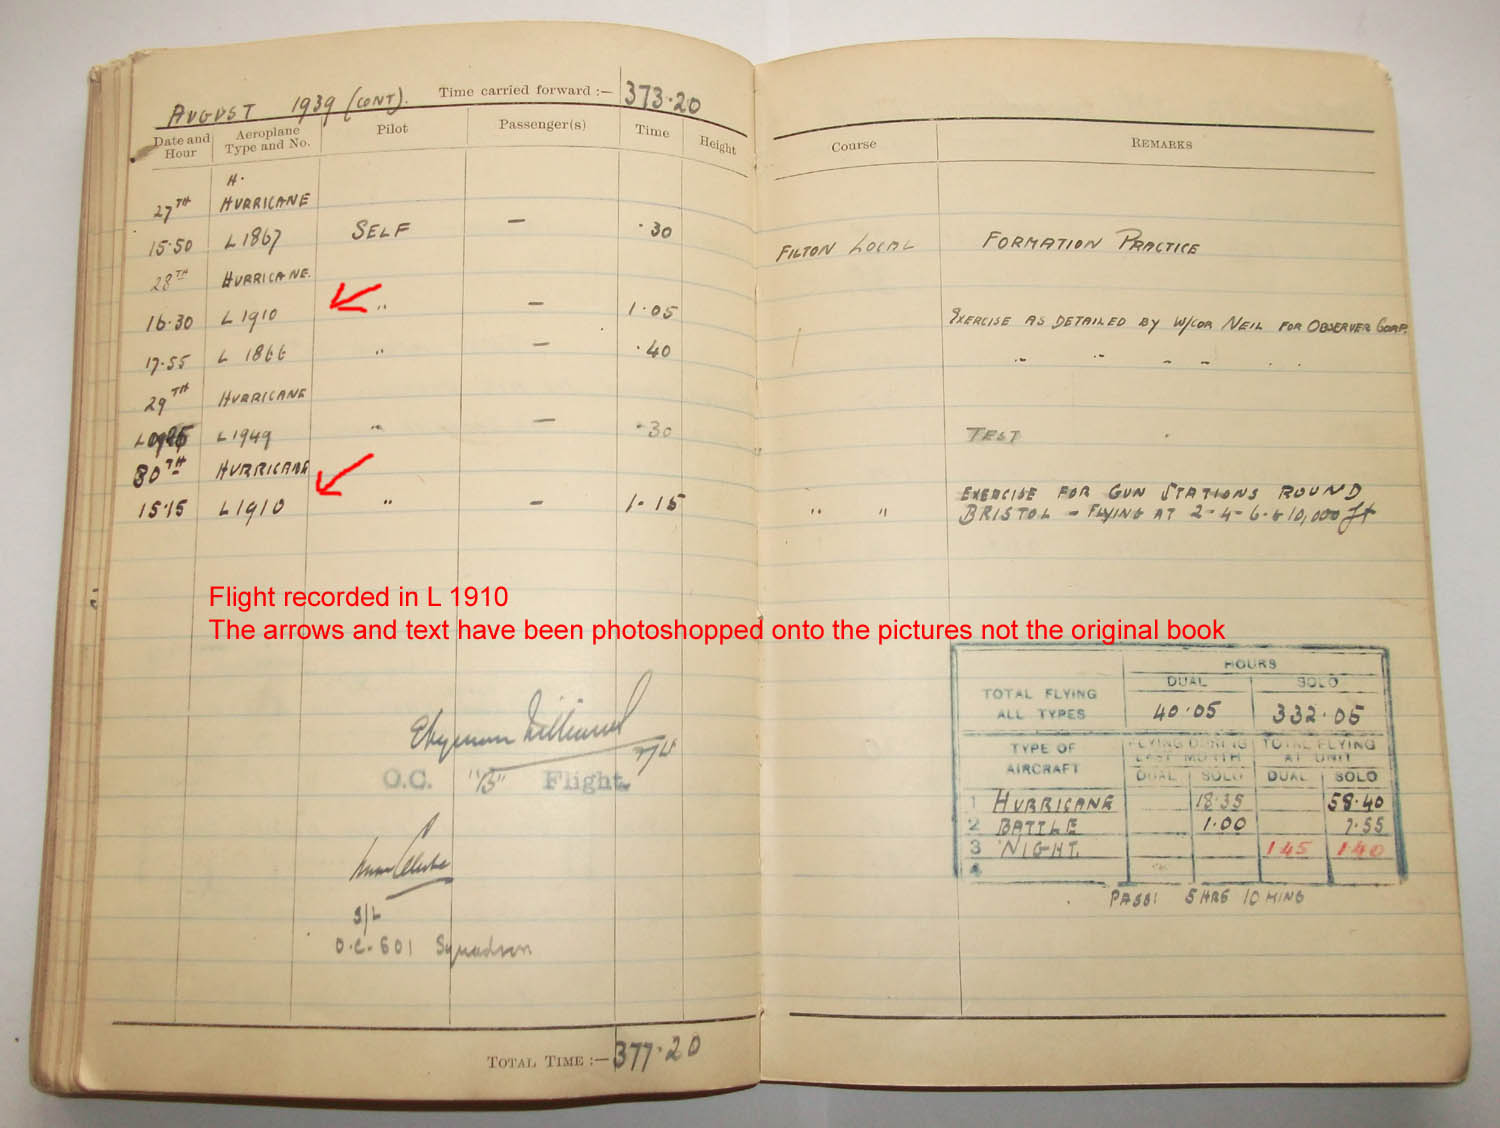 AUGUST 1939 (CONT). Time carried forward :— 373·20
Date and Hour Aeroplane Type and No. Pilot Passenger(s) Time Height Course REMARKS
H.
27TH HURRICANE
15·50 L 1867 SELF — ·30 FILTON LOCAL FORMATION PRACTICE
28TH HURRICANE.
16·30 L 1910 " — 1·05 EXERCISE AS DETAILED BY W/CDR NEIL FOR OBSERVER CORP.
17·55 L 1866 " — ·40 " " " " " "
29TH HURRICANE
L 1949 " — ·30 TEST
30TH HURRICANE
15·15 L 1910 " — 1·15 " " EXERCISE FOR GUN STATIONS ROUND
BRISTOL – FLYING AT 2-4-6-&10,000 ft
Flight recorded in L 1910
The arrows and text have been photoshopped onto the pictures not the original book
O.C. "B" Flight.
S/L
O.C. 601 Squadron
TOTAL TIME :— 377·20
HOURS
DUAL SOLO
TOTAL FLYING
ALL TYPES 40·05 332·05
TYPE OF AIRCRAFT FLYING DURING LAST MONTH TOTAL FLYING AT UNIT
DUAL SOLO DUAL SOLO
1 HURRICANE 18·35 58·40
2 BATTLE 1·00 7·55
3 NIGHT. 1·45 1·40
4
PASS: 5 HRS 10 MINS